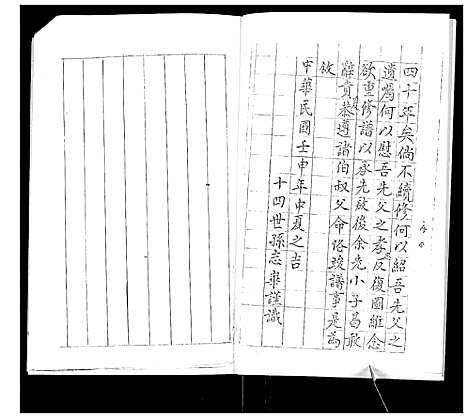 四十年矣倘不續修何以紹吾先父之
遺囑何以慰吾先父之孝思反復圖維念
欲重修譜以承先啟後余先小子曷敢
辭責恭遵諸伯叔父命恪竣譜事是為
敘
中華民國壬申年中夏之吉
十四世孫志華謹識